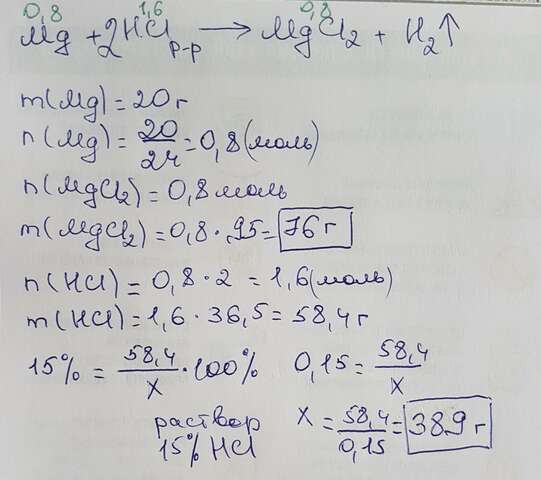 0,8 1,6 0,8
Mg + 2HCl р-р → MgCl₂ + H₂↑
m(Mg) = 20 г
n(Mg) = 20/24 = 0,8 (моль)
n(MgCl₂) = 0,8 моль
m(MgCl₂) = 0,8 · 95 = 76 г
n(HCl) = 0,8 · 2 = 1,6 (моль)
m(HCl) = 1,6 · 36,5 = 58,4 г
15% = 58,4/x · 100% 0,15 = 58,4/x
раствор 15% HCl x = 58,4/0,15 = 389 г